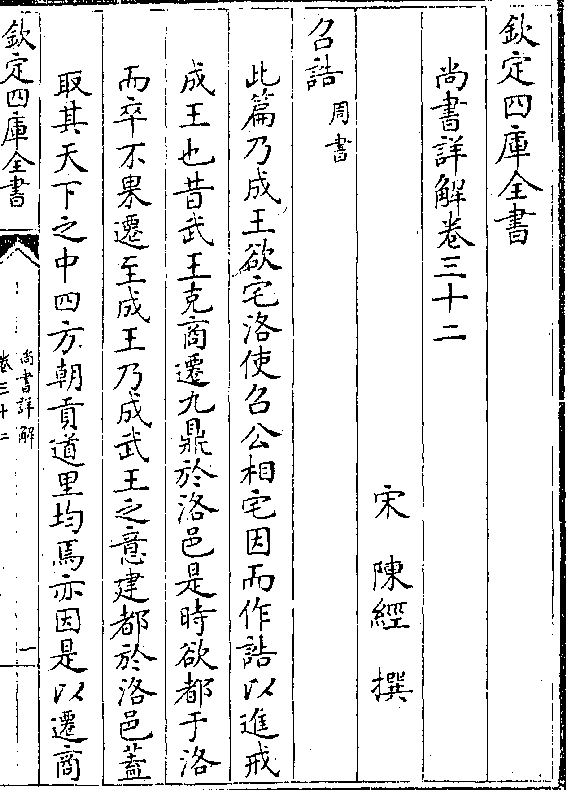 欽定四庫全書
尚書詳解卷三十二
宋 陳經 撰
召誥 周書
此篇乃成王欲宅洛使召公相宅因而作誥以進戒
成王也昔武王克商遷九鼎於洛邑是時欲都于洛
而卒不果遷至成王乃成武王之意建都於洛邑蓋
取其天下之中四方朝貢道里均焉亦因是以遷商
欽定四庫全書
尚書詳解
卷三十二
一